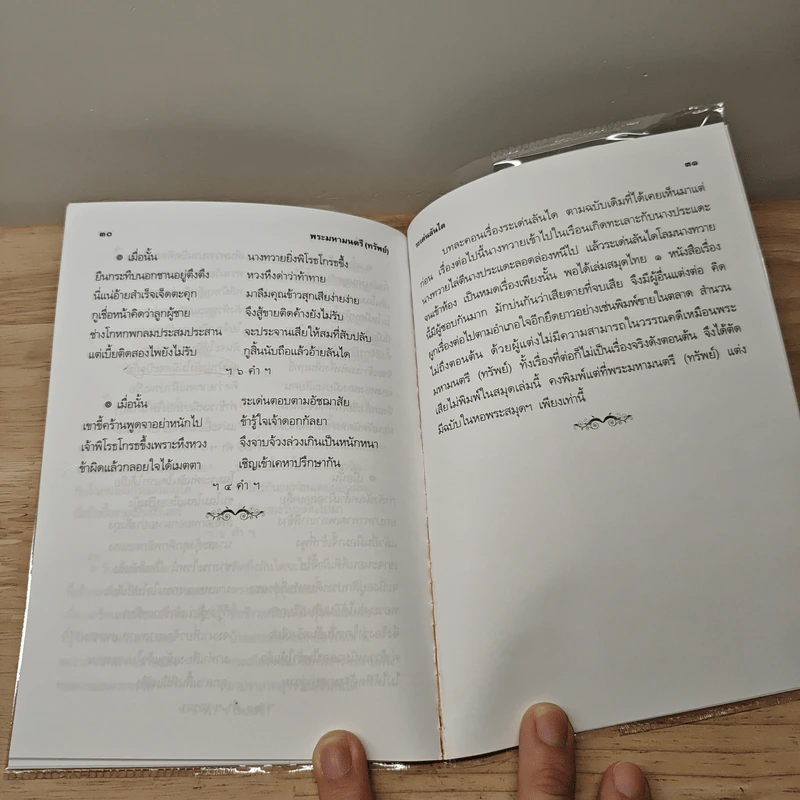 ๓๐
พระมหามนตรี (ทรัพย์)
๏ เมื่อนั้น นางทวายยิ่งพิโรธโกรธขึ้ง
ยืนกระทืบนอกชานอยู่ตึงตึง หวงหึงด่าว่าท้าทาย
นี่แน่อ้ายสำเร็จเจ็ดตะคุก มาลืมคุณข้าวสุกเสียง่ายง่าย
กูเชื่อหน้าคิดว่าลูกผู้ชาย จึงสู้ขายติดค้างยังไม่รับ
ช่างโกหกพกลมประสมประสาน จะประจานเสียให้สมที่สับปลับ
แต่เบี้ยติดสองไพยังไม่รับ กูสิ้นนับถือแล้วอ้ายลันได
ฯ ๖ คำ ฯ
๏ เมื่อนั้น ระเด่นตอบตามอัชฌาสัย
เขาขี้คร้านพูดจาอย่าหนักไป ข้ารู้ใจเจ้าดอกกัลยา
เจ้าพิโรธโกรธขึ้งเพราะหึงหวง จึงจาบจ้วงล่วงเกินเป็นหนักหนา
ข้าผิดแล้วกลอยใจได้เมตตา เชิญเข้าเคหาปรึกษากัน
ฯ ๔ คำ ฯ
๓๑
ระเด่นลันได
บทละคอนเรื่องระเด่นลันได ตามฉบับเดิมที่ได้เคยเห็นมาแต่
ก่อน เรื่องต่อไปนี้นางทวายเข้าไปในเรือนเกิดทะเลาะกับนางประแดะ
นางทวายไล่ตีนางประแดะลอดล่องหนีไป แล้วระเด่นลันไดโลมนางทวาย
จนเข้าห้อง เป็นหมดเรื่องเพียงนั้น พอได้เล่มสมุดไทย ๑ หนังสือเรื่อง
นี้มีผู้ชอบกันมาก มักบ่นกันว่าเสียดายที่จบเสีย จึงมีผู้อื่นแต่งต่อ คิด
ผูกเรื่องต่อไปตามอำเภอใจอีกยืดยาวอย่างเช่นพิมพ์ขายในตลาด สำนวน
ไม่ถึงตอนต้น ด้วยผู้แต่งไม่มีความสามารถในวรรณคดีเหมือนพระ
มหามนตรี (ทรัพย์) ทั้งเรื่องที่ต่อก็ไม่เป็นเรื่องจริงดังตอนต้น จึงได้ตัด
เสียไม่พิมพ์ในสมุดเล่มนี้ คงพิมพ์แต่ที่พระมหามนตรี (ทรัพย์) แต่ง
มีฉบับในหอพระสมุดฯ เพียงเท่านี้